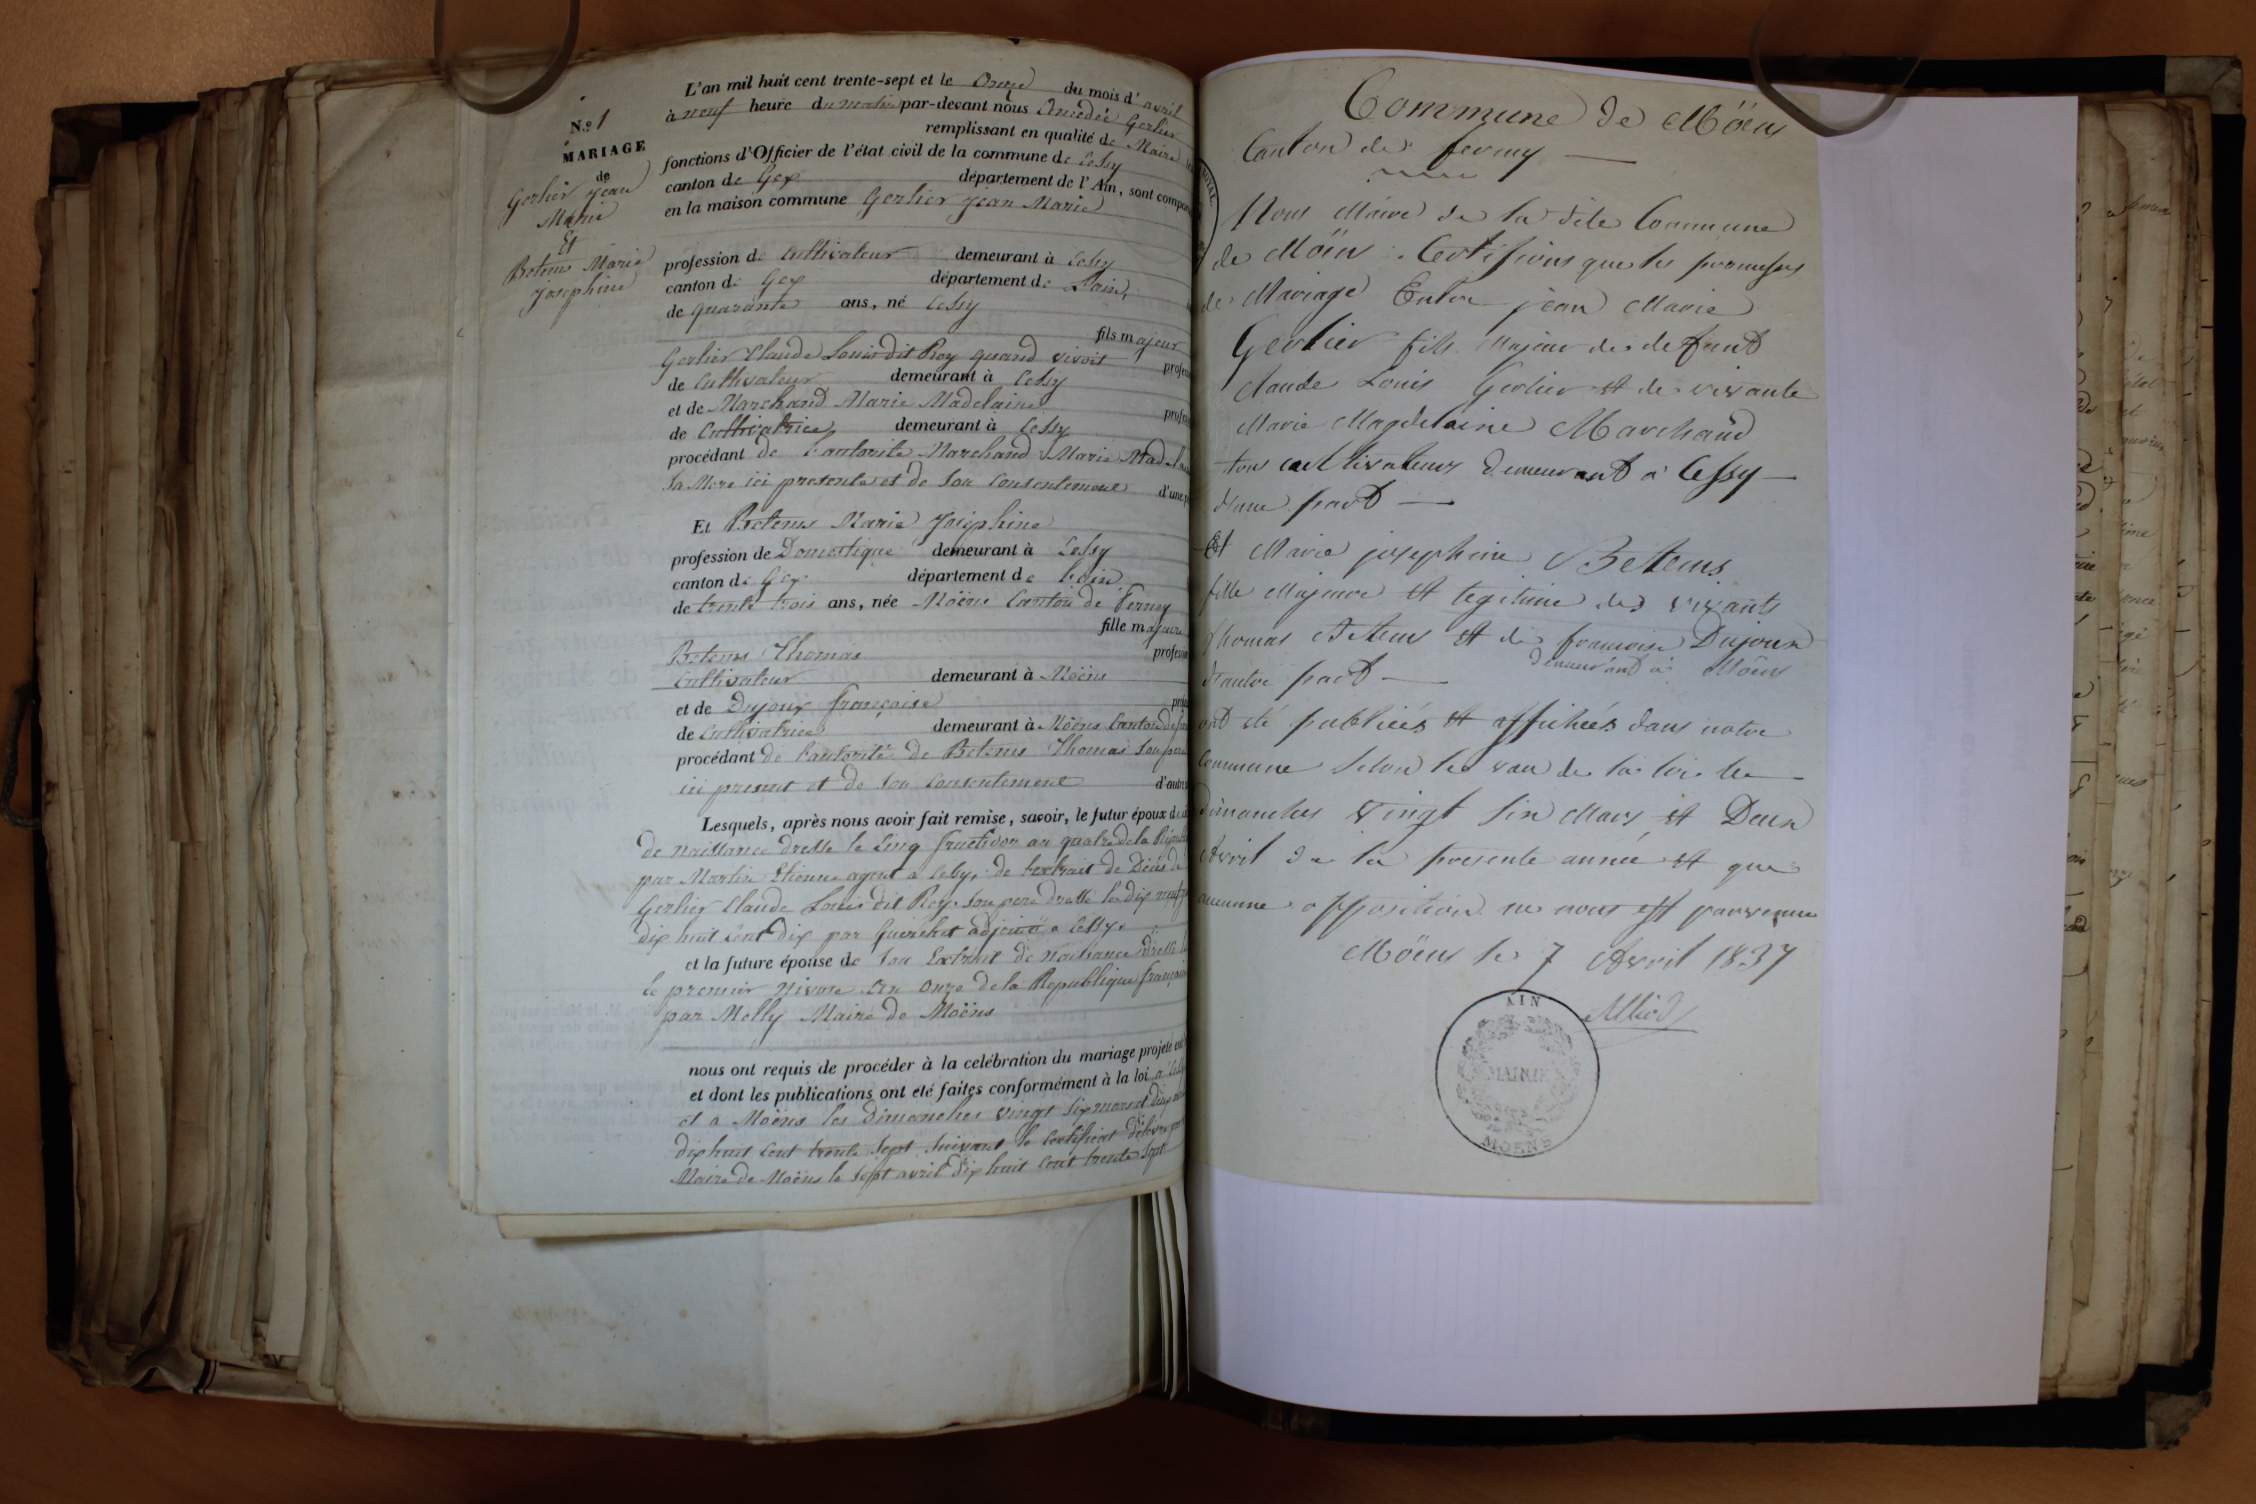 N.º 1
MARIAGE
de
Gerlier Jean
Marie
Et
Betems Marie
Josephine
L'an mil huit cent trente-sept et le onze du mois d'avril
à neuf heure du matin par-devant nous Amédée Gerlier
remplissant en qualité de Maire
fonctions d'Officier de l'état civil de la commune de Cessy
canton de Gex département de l'Ain, sont
en la maison commune Gerlier Jean Marie
profession de Cultivateur demeurant à Cessy
canton de Gex département de L'ain,
de quarante ans, né Cessy
fils majeur
Gerlier Claude Louis dit Roy quand vivoit
de Cultivateur demeurant à Cessy
et de Marchand Marie Madelaine
de Cultivatrice demeurant à Cessy
procédant de l'autorité Marchand Marie
Sa Mere ici presente et de son Consentement
Et Betems Marie Josephine
profession de Domestique demeurant à Cessy
canton de Gex département de l'ain
de trente trois ans, née Möëns Canton de Ferney
fille majeure
Betems Thomas
Cultivateur demeurant à Möëns
et de Dujoux françoise
de Cultivatrice demeurant à Möëns Canton de
procédant de l'autorité de Betems Thomas son pere
ici present et de son Consentement
Lesquels, après nous avoir fait remise, savoir, le futur époux
de naissance dressé le Cinq fructidor an quatre de la
par Martin Etienne agent a Cessy, de l'extrait de Décès de
Gerlier Claude Louis dit Roy son pere dressé le dix neuf
dix huit Cent dix par adjoint a Cessy.
et la future épouse de son Extrait de naissance dressé
le premier nivose an onze de la Republique française
par Melly Maire de Moëns
nous ont requis de procéder à la celébration du mariage projeté
et dont les publications ont été faites conformément à la loi a
et a Moëns les Dimanches vingt six mars et
dix huit Cent trente sept suivant le Certificat délivré
Maire de Moëns le sept avril dix huit Cent trente sept
Commune de Möens
Canton de ferney
Nous Maire de la dite Commune
de Möens. Certifions que les promesses
de Mariage Entre jean Marie
Gerlier fils Majeur de defunt
Claude Louis Gerlier et de vivante
Marie Magdelaine Marchand
tous cultivateurs demeurant à Cessy
d'une part
Et Marie josephine Betems
fille Majeure et legitime des vivants
thomas Betems et de francoise Dujoux
demeurant à Möens
d'autre part
ont été publiées et affichées dans notre
Commune selon le vœu de la loi les
dimanches vingt six Mars et Deux
Avril de la presente année et que
aucune opposition ne nous est parvenue
Möens le 7 Avril 1837
AIN
MAIRIE
MOENS